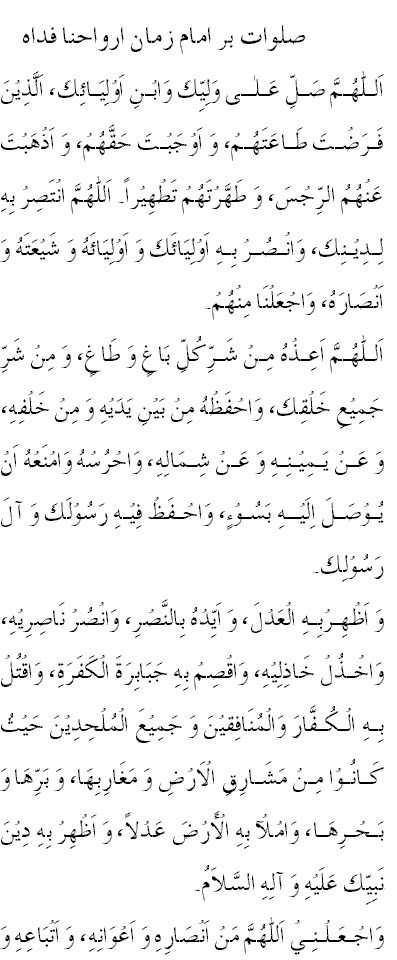 صلوات بر امام زمان ارواحنا فداه
اَللّٰهُمَّ صَلِّ عَلٰی وَلِیِّكَ وَابْنِ اَوْلِیَائِكَ، اَلَّذِیْنَ
فَرَضْتَ طَاعَتَهُمْ، وَ اَوْجَبْتَ حَقَّهُمْ، وَ اَذْهَبْتَ
عَنْهُمُ الرِّجْسَ، وَ طَهَّرْتَهُمْ تَطْهِیْراً۔ اَللّٰهُمَّ انْتَصِرْ بِهِ
لِدِیْنِكَ، وَانْصُرْ بِهِ اَوْلِیَائَكَ وَ اَوْلِیَائَهُ وَ شِیْعَتَهُ وَ
اَنْصَارَهُ، وَاجْعَلْنَا مِنْهُمْ۔
اَللّٰهُمَّ اَعِذْهُ مِنْ شَرِّ کُلِّ بَاغٍ وَ طَاغٍ، وَ مِنْ شَرِّ
جَمِیْعِ خَلْقِكَ، وَاحْفَظْهُ مِنْ بَیْنِ یَدَیْهِ وَ مِنْ خَلْفِهِ،
وَ عَنْ یَمِیْنِهِ وَ عَنْ شِمَالِهِ، وَاحْرُسْهُ وَامْنَعْهُ اَنْ
یُوْصَلَ اِلَیْهِ بَسُوْءٍ، وَاحْفَظْ فِیْهِ رَسُوْلَكَ وَ آلَ
رَسُوْلِكَ۔
وَ اَظْهِرْ بِهِ الْعَدْلَ، وَ اَیِّدْهُ بِالنَّصْرِ، وَانْصُرْ نَاصِرِیْهِ،
وَاخْذُلْ خَاذِلِیْهِ، وَاقْصِمْ بِهِ جَبَابِرَةَ الْکَفَرَةِ، وَاقْتُلْ
بِهِ الْکُفَّارَ وَالْمُنَافِقِیْنَ وَ جَمِیْعَ الْمُلْحِدِیْنَ حَیْثُ
کَانُوْا مِنْ مَشَارِقِ الْاَرْضِ وَ مَغَارِبِهَا، وَ بَرِّهَا وَ
بَحْرِهَا، وَامْلَآ بِهِ الْأَرْضَ عَدْلاً، وَ اَظْهِرْ بِهِ دِیْنَ
نَبِیِّكَ عَلَیْهِ وَ آلِهِ السَّلاَمُ۔
وَاجْعَلْنِیْ اَللّٰهُمَّ مَنْ اَنْصَارِهِ وَ اَعْوَانِهِ، وَ اَتْبَاعِهِ وَ